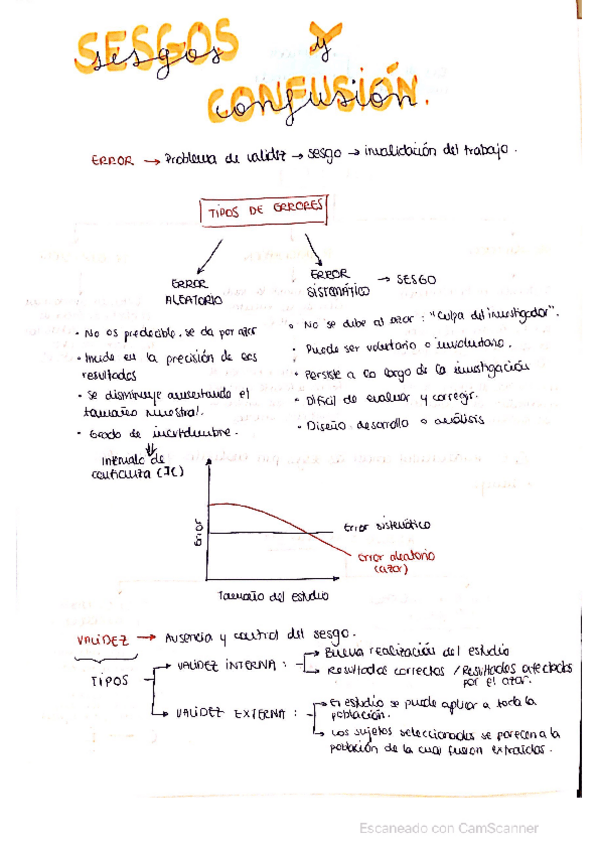 SESGOS Y
sesgos
CONFUSIÓN.
confusión
ERROR → Problema de validez → sesgo → invalidación del trabajo.
TIPOS DE ERRORES
ERROR ALEATORIO
· No es predecible. se da por azar
· Incide en la precisión de los
resultados
· Se disminuye aumentando el
tamaño muestral.
· Grado de incertidumbre.
Intervalo de
confianza (IC)
ERROR SISTEMÁTICO → SESGO
· No se debe al azar : "Culpa del investigador".
· Puede ser voluntario o involuntario.
· Persiste a lo largo de la investigación
· Difícil de evaluar y corregir.
· Diseño. desarrollo o análisis
Error
Error sistemático
Error aleatorio
(azar)
Tamaño del estudio
VALIDEZ → Ausencia y control del sesgo.
TIPOS
→ VALIDEZ INTERNA :
→ Buena realización del estudio
→ Resultados correctos / Resultados afectados
por el azar.
→ VALIDEZ EXTERNA :
→ El estudio se puede aplicar a toda la
población.
→ Los sujetos seleccionados se parecen a la
población de la cual fueron extraídos.
Escaneado con CamScanner